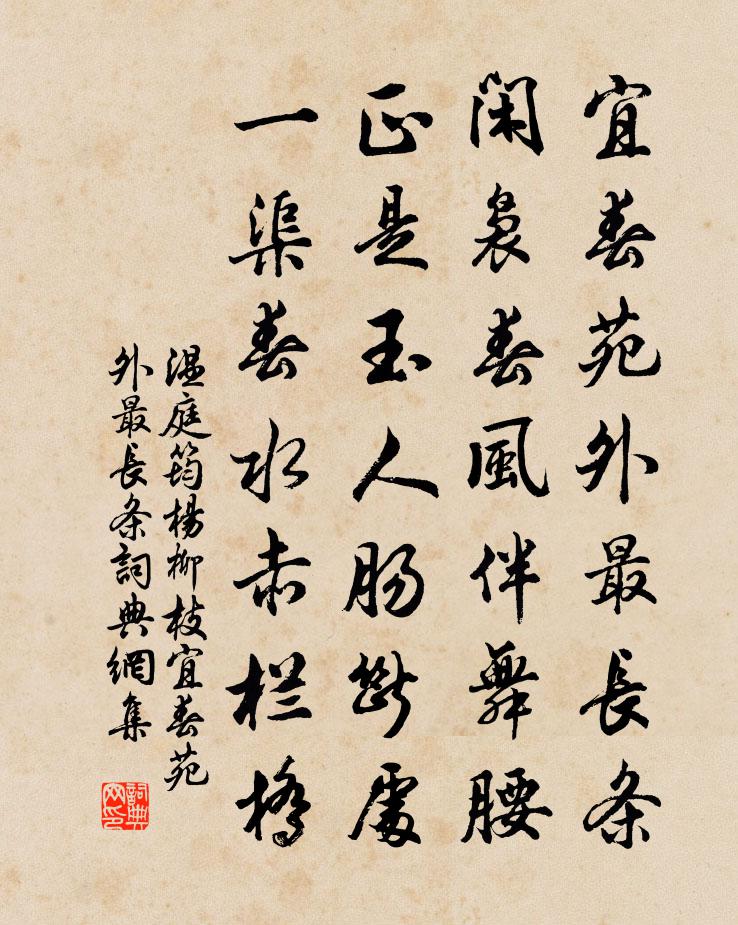 宜春苑外最長条
閑裊春風伴舞腰
正是玉人腸斷處
一渠春水赤栏橋
温庭筠楊柳枝宜春苑
外最長条詞典網集
詞典
网印